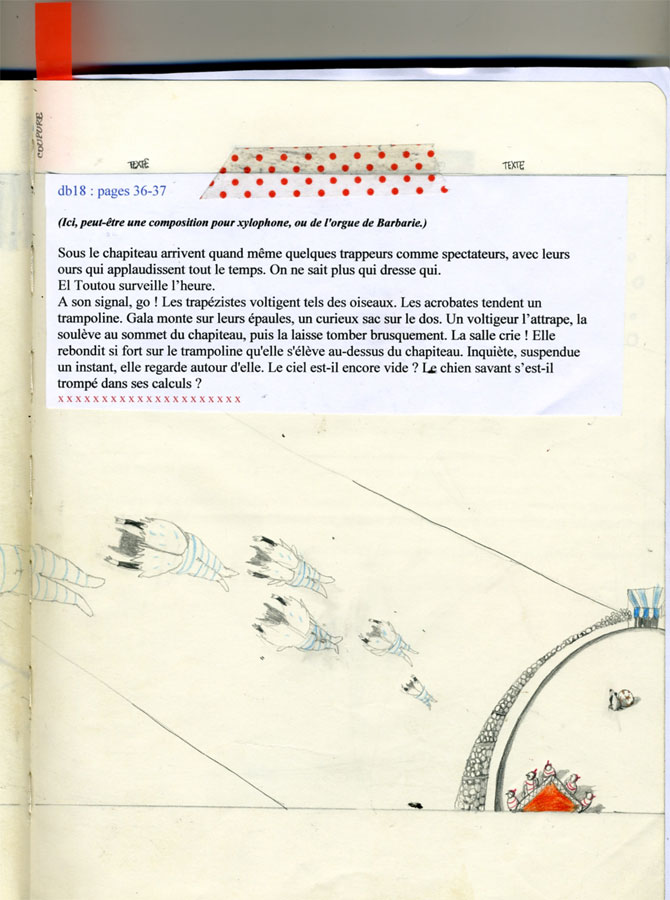 COUPURE
TEXTE
TEXTE
db18 : pages 36-37
(Ici, peut-être une composition pour xylophone, ou de l'orgue de Barbarie.)
Sous le chapiteau arrivent quand même quelques trappeurs comme spectateurs, avec leurs
ours qui applaudissent tout le temps. On ne sait plus qui dresse qui.
El Toutou surveille l'heure.
A son signal, go ! Les trapézistes voltigent tels des oiseaux. Les acrobates tendent un
trampoline. Gala monte sur leurs épaules, un curieux sac sur le dos. Un voltigeur l'attrape, la
soulève au sommet du chapiteau, puis la laisse tomber brusquement. La salle crie ! Elle
rebondit si fort sur le trampoline qu'elle s'élève au-dessus du chapiteau. Inquiète, suspendue
un instant, elle regarde autour d'elle. Le ciel est-il encore vide ? Le chien savant s'est-il
trompé dans ses calculs ?
x x x x x x x x x x x x x x x x x x x x x